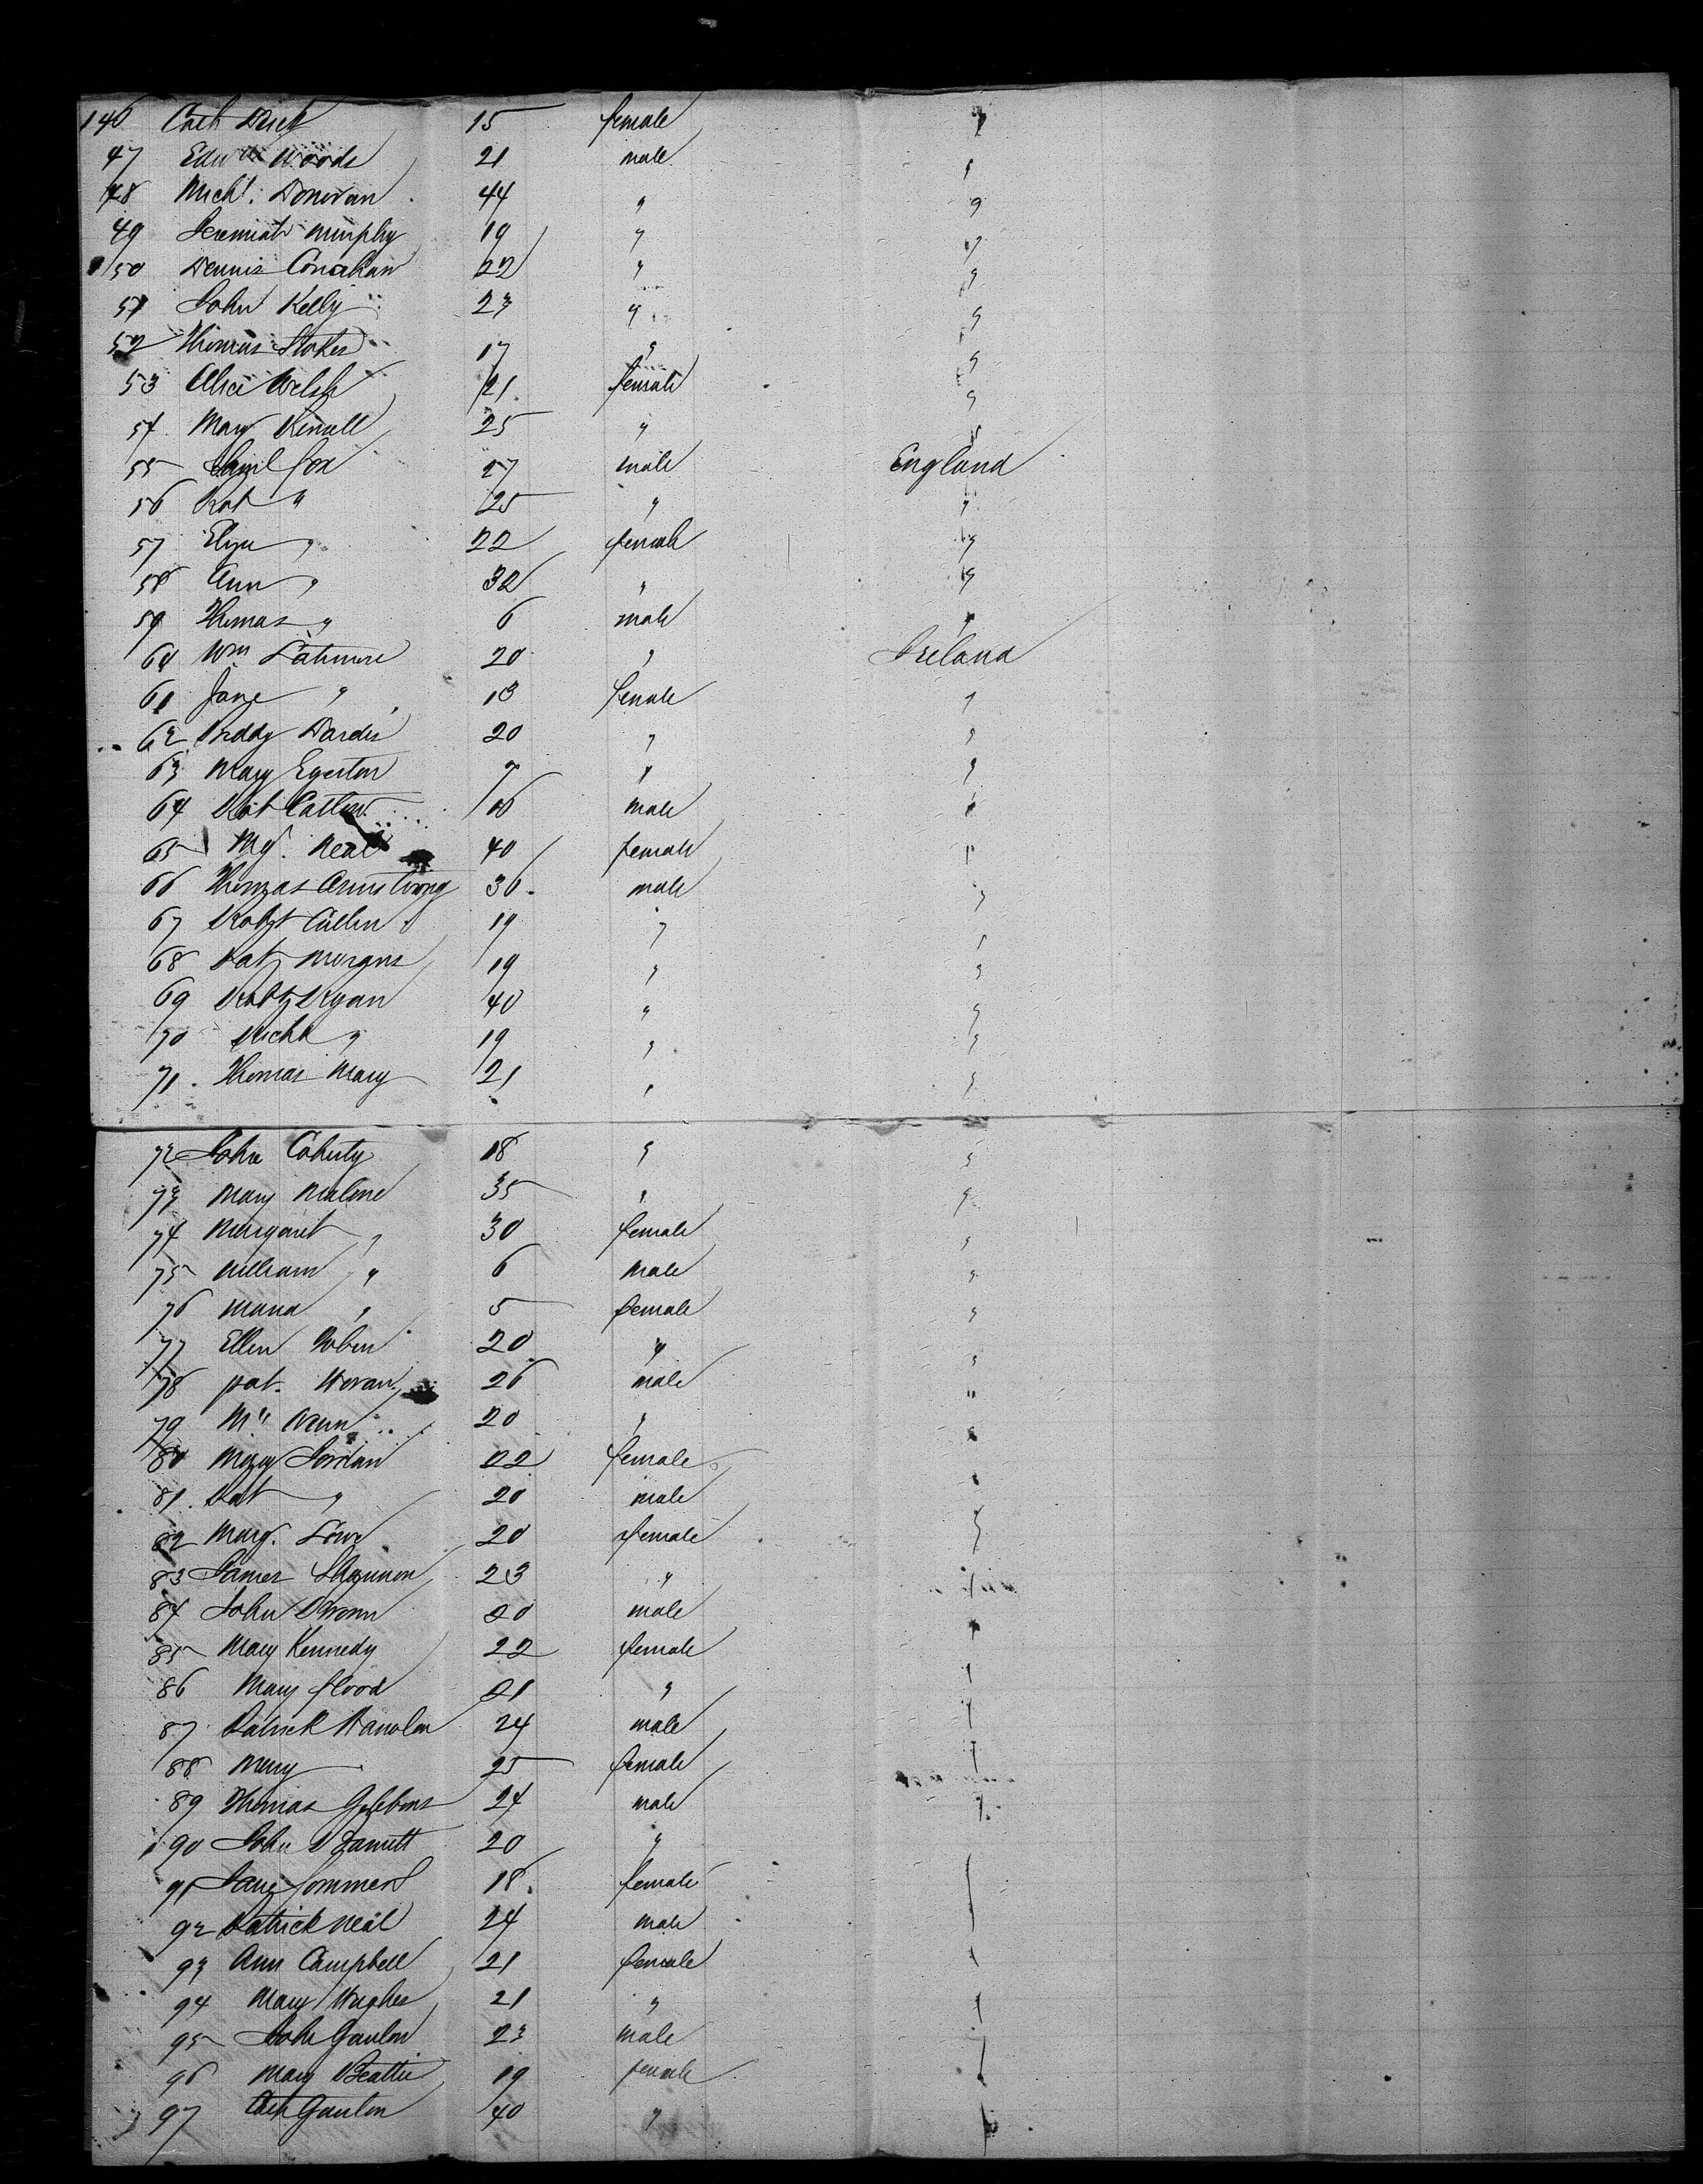 146 Cath 15 female "
47 Edwd Woods 21 male "
48 Michl. Donovan 44 " "
49 Jeremiah Murphy 19 " "
150 Dennis Conahan 22 " "
51 John Kelly 23 " "
52 Thomas Stokes 17 " "
53 Alice Welsh 21 female "
54 Mary 25 " "
55 Fox 27 male England
56 Pat " 25 " "
57 Eliza " 22 female "
58 Ann " 32 " "
59 Thomas " 6 male "
60 Wm Latimore 20 " Ireland
61 Jane " 13 female "
62 Biddy Dardis 20 " "
63 Mary Egerton 7 " "
64 Pat 10 male "
65 Mgt. Neal 40 female "
66 Thomas Armstrong 36 male "
67 Robt Cullen 19 " "
68 Pat 19 " "
69 Ryan 40 " "
70 " 19 " "
71 Thomas Mary 21 " "
72 John 18 " "
73 Mary Malone 35 " "
74 Margaret " 30 female "
75 William " 6 male "
76 Maria " 5 female "
77 Ellen Tobin 20 " "
78 Pat. 26 male "
79 20 " "
80 Mary Jordan 22 female "
81 Pat " 20 male "
82 Marg. Lowe 20 female "
83 James Shannon 23 " "
84 John Brown 20 male "
85 Mary Kennedy 22 female "
86 Mary Flood 21 " "
87 Patrick Hanolen 24 male "
88 Mary 25 female "
89 Thomas Gibbons 24 male "
90 John 20 "
91 Jane Sommers 18 female
92 Patrick Neal 24 male
93 Ann Campbell 21 female "
94 Mary Hughes 21 " "
95 John Gaulon 23 male
96 Mary Beattie 19 female
97 Cath Gaulon 40 " "